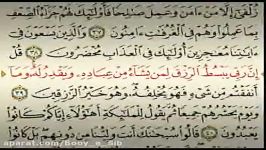 زُلْفَىٰٓ إِلَّا مَنْ ءَامَنَ وَعَمِلَ صَٰلِحًا فَأُو۟لَٰٓئِكَ لَهُمْ جَزَآءُ ٱلضِّعْفِ
بِمَا عَمِلُوا۟ وَهُمْ فِى ٱلْغُرُفَٰتِ ءَامِنُونَ ٣٧ وَٱلَّذِينَ يَسْعَوْنَ فِىٓ
ءَايَٰتِنَا مُعَٰجِزِينَ أُو۟لَٰٓئِكَ فِى ٱلْعَذَابِ مُحْضَرُونَ ٣٨ قُلْ
إِنَّ رَبِّى يَبْسُطُ ٱلرِّزْقَ لِمَن يَشَآءُ مِنْ عِبَادِهِۦ وَيَقْدِرُ لَهُۥ وَمَآ
أَنفَقْتُم مِّن شَىْءٍ فَهُوَ يُخْلِفُهُۥ وَهُوَ خَيْرُ ٱلرَّٰزِقِينَ ٣٩
وَيَوْمَ يَحْشُرُهُمْ جَمِيعًا ثُمَّ يَقُولُ لِلْمَلَٰٓئِكَةِ أَهَٰٓؤُلَآءِ إِيَّاكُمْ كَانُوا۟
يَعْبُدُونَ ٤٠ قَالُوا۟ سُبْحَٰنَكَ أَنتَ وَلِيُّنَا مِن دُونِهِم بَلْ كَانُوا۟
aparat.com/Booy_e_Sib